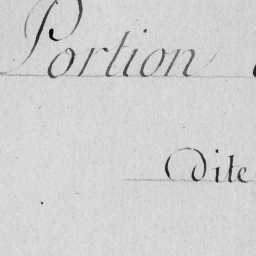 Portion
dite